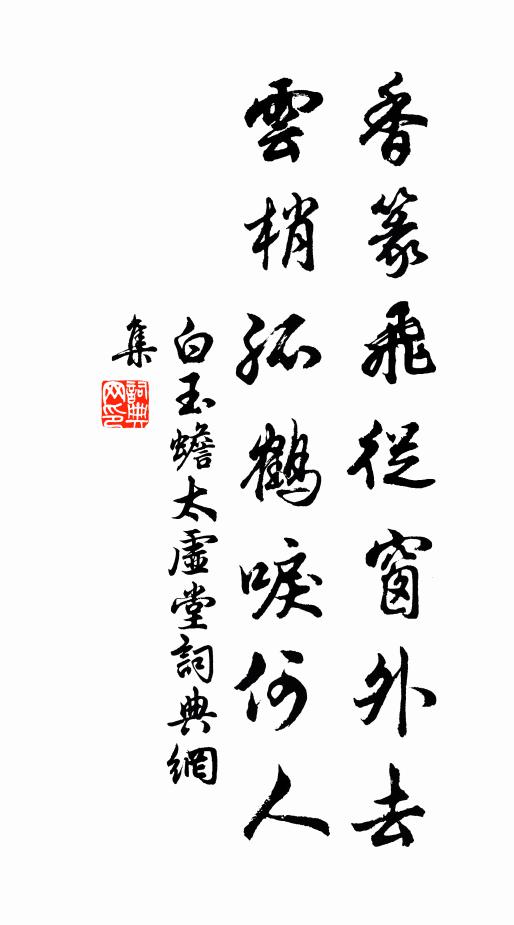 香篆飛從窗外去
雲梢孤鶴唳何人
白玉蟾太虛堂詞典網
集
詞典网印